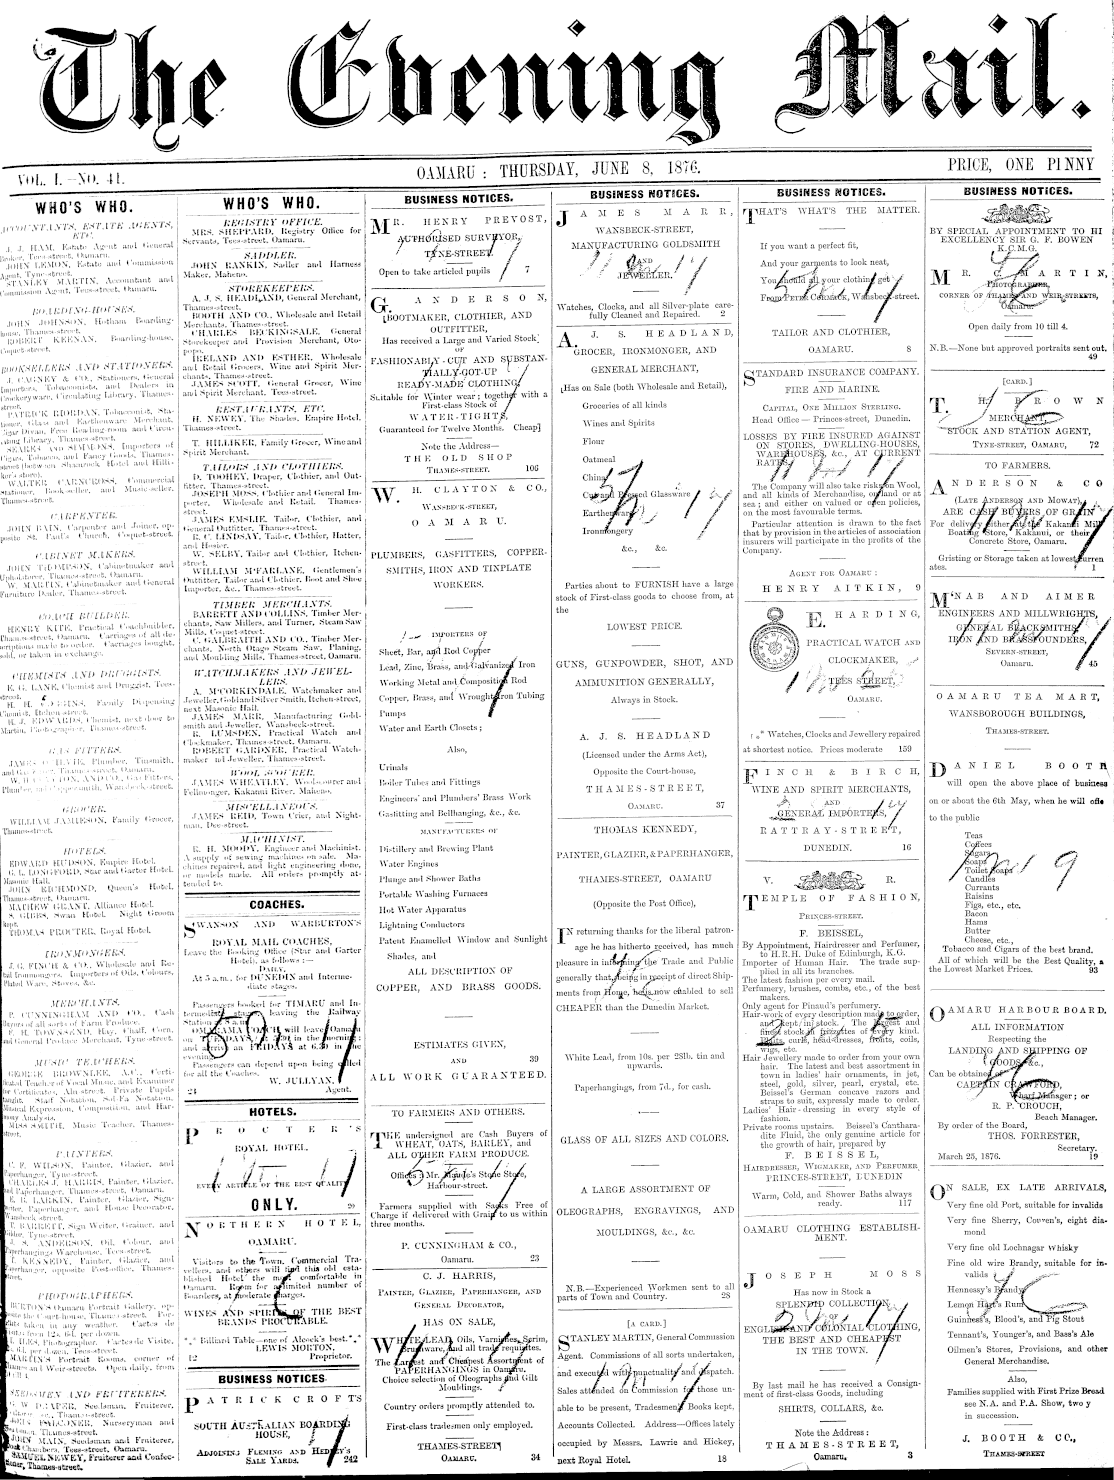 The Evening Mail.
VOL. I.—NO. 41.
OAMARU: THURSDAY, JUNE 8, 1876.
PRICE, ONE PENNY
WHO'S WHO.
ACCOUNTANTS, ESTATE AGENTS,
ETC.
J. J. HAM, Estate Agent and General
Broker, Tees-street, Oamaru.
JOHN LEMON, Estate and Commission
Agent, Tyne-street.
STANLEY MARTIN, Accountant and
Commission Agent, Tees-street, Oamaru.
BOARDING-HOUSES.
JOHN JOHNSON, Hotham Boarding-
house, Thames-street.
ROBERT KEENAN, Boarding-house,
Coquet-street.
BOOKSELLERS AND STATIONERS.
J. CAGNEY & CO., Stationers, General
Importers, Tobacconists, and Dealers in
Crockeryware, Circulating Library, Thames-
street.
PATRICK RIORDAN, Tobacconist, Sta-
Thames-street.
SEARES AND SIMMONS, Importers of
Cigars, Tobacco, and Fancy Goods, Thames-
WALTER CARNCROSS, Commercial
Stationer, Book-seller, and Music-seller,
Thames-street.
CARPENTER.
JOHN BAIN, Carpenter and Joiner, op-
posite St. Paul's Church, Coquet-street.
CABINET MAKERS.
JOHN THOMPSON, Cabinetmaker and
Upholsterer, Thames-street, Oamaru.
W. MARTIN, Cabinetmaker and General
Furniture Dealer, Thames-street.
COACH BUILDER.
HENRY KITE, Practical Coachbuilder,
Thames-street, Oamaru. Carriages of all de-
scriptions made to order. Carriages bought,
sold, or taken in exchange.
CHEMISTS AND DRUGGISTS.
E. G. LANE, Chemist and Druggist, Tees-
street.
Chemist, Itchen-street.
H. J. EDWARDS, Chemist, next door to
Martin, Photographer, Thames-street.
GAS FITTERS.
Plumber, Tinsmith,
GROCER.
WILLIAM JAMIESON, Family Grocer,
Thames-street.
HOTELS.
EDWARD HUDSON, Empire Hotel.
G. L. LONGFORD, Star and Garter Hotel,
Masonic Hall.
JOHN RICHMOND, Queen's Hotel,
Thames-street.
MATHEW GRANT, Alliance Hotel.
S. GIBBS, Swan Hotel. Night Groom
kept.
THOMAS PROCTER, Royal Hotel.
IRONMONGERS.
J. G. FINCH & CO., Wholesale and Re-
tail Ironmongers. Importers of Oils, Colours,
Plated Ware, Stoves, &c.
MERCHANTS.
P. CUNNINGHAM AND CO., Cash
Buyers of all sorts of Farm Produce.
Hay, Chaff, Corn,
and General Produce Merchant, Tyne-street.
MUSIC TEACHERS.
GEORGE BROWNLEE, A.C., Certi-
ficated Teacher of Vocal Music, and Examiner
for Certificates, Aln-street. Private Pupils
taught. Staff Notation, Sol-Fa Notation,
Musical Expression, Composition, and Har-
mony Analysis.
MISS SMITH, Music Teacher, Thames-
street.
PAINTERS.
C. F. WILSON, Painter, Glazier, and
Paperhanger, Tyne-street.
CHARLES J. HARRIS, Painter, Glazier,
and Paperhanger, Thames-street, Oamaru.
R. B. LARKIN, Painter, Glazier, Sign-
writer, Paperhanger, and House Decorator,
Wansbeck-street.
T. BARRETT, Sign Writer, Grainer, and
J. S. ANDERSON, Oil, Colour, and
Paperhangings Warehouse, Tees-street.
T. KENNEDY, Painter, Glazier, and
Paperhanger, opposite Post-office, Thames-
street.
PHOTOGRAPHERS.
BURTON'S Oamaru Portrait Gallery, op-
taken in any weather. Cartes de
MARTIN'S Portrait Rooms, corner of
Thames and Weir-streets. Open daily, from
SEEDSMEN AND FRUITERERS.
G. W. DRAPER, Seedsman, Fruiterer,
FALCONER, Nurseryman and
Seedsman, Thames-street.
JOHN MAIN, Seedsman and Fruiterer,
Tees-street, Oamaru.
SAMUEL NEWEY, Fruiterer and Confec-
tioner, Thames-street.
WHO'S WHO.
REGISTRY OFFICE.
MRS. SHEPPARD, Registry Office for
Servants, Tees-street, Oamaru.
SADDLER.
JOHN RANKIN, Sadler and Harness
Maker, Maheno.
STOREKEEPERS.
A. J. S. HEADLAND, General Merchant,
Thames-street.
BOOTH AND CO., Wholesale and Retail
Merchants, Thames-street.
CHARLES BECKINGSALE, General
Storekeeper and Provision Merchant, Oto-
popo.
IRELAND AND ESTHER, Wholesale
and Retail Grocers, Wine and Spirit Mer-
chants, Thames-street.
JAMES SCOTT, General Grocer, Wine
and Spirit Merchant, Tees-street.
RESTAURANTS, ETC.
H. NEWEY, The Shades, Empire Hotel,
Thames-street.
T. HILLIKER, Family Grocer, Wine and
Spirit Merchant.
TAILORS AND CLOTHIERS.
D. TOOHEY, Draper, Clothier, and Out-
fitter, Thames-street.
JOSEPH MOSS, Clothier and General Im-
porter, Wholesale and Retail, Thames-
street.
JAMES EMSLIE, Tailor, Clothier, and
General Outfitter, Thames-street.
R. C. LINDSAY, Tailor, Clothier, Hatter,
and Hosier.
W. SELBY, Tailor and Clothier, Itchen-
street.
WILLIAM M'FARLANE, Gentlemen's
Outfitter, Tailor and Clothier, Boot and Shoe
Importer, &c., Thames-street.
TIMBER MERCHANTS.
BARRETT AND COLLINS, Timber Mer-
chants, Saw Millers, and Turner, Steam Saw
Mills, Coquet-street.
C. GALBRAITH AND CO., Timber Mer-
chants, North Otago Steam Saw, Planing,
and Moulding Mills, Thames-street, Oamaru.
WATCHMAKERS AND JEWEL-
LERS.
A. M'CORKINDALE, Watchmaker and
Jeweller, Gold and Silver Smith, Itchen-street,
next Masonic Hall.
JAMES MARR, Manufacturing Gold-
smith and Jeweller, Wansbeck-street.
R. LUMSDEN, Practical Watch and
Clockmaker, Thames-street, Oamaru.
ROBERT GARDNER, Practical Watch-
maker and Jeweller, Thames-street.
WOOL SCOURER.
JAMES WHEATLEY, Woolscourer and
Fellmonger, Kakanui River, Maheno.
MISCELLANEOUS.
JAMES REID, Town Crier, and Night-
man, Dee-street.
MACHINIST.
R. H. MOODY, Engineer and Machinist.
A supply of sewing machines on sale. Ma-
chines repaired, and light engineering done,
or models made. All orders promptly at-
tended to.
COACHES.
SWANSON AND WARBURTON'S
ROYAL MAIL COACHES,
Leave the Booking Office (Star and Garter
Hotel, as follows :—
DAILY,
At 5 a.m., for DUNEDIN and Interme-
diate stages.
Passengers booked for TIMARU and In-
termediate stages, leaving the Railway
Station
OMARAMA COACH will leave Oamaru
on TUESDAYS, at 6.30 in the morning;
and arrive on FRIDAYS at 6.30 in the
evening.
Passengers can depend upon being called
for all the Coaches.
W. JULLYAN,
24 Agent.
HOTELS.
PROCTER'S
ROYAL HOTEL,
EVERY ARTICLE OF THE BEST QUALITY
ONLY. 20
NORTHERN HOTEL,
OAMARU.
Visitors to the Town, Commercial Tra-
vellers, and others will find this old esta-
blished Hotel the most comfortable in
Oamaru. Room for a limited number of
Boarders, at moderate charges.
WINES AND SPIRITS OF THE BEST
BRANDS PROCURABLE.
Billiard Table—one of Alcock's best.
LEWIS MORTON,
12 Proprietor.
BUSINESS NOTICES
PATRICK CROFTS
SOUTH AUSTRALIAN BOARDING
HOUSE,
ADJOINING FLEMING AND HEDLEY'S
SALE YARDS. 242
BUSINESS NOTICES.
MR. HENRY PREVOST,
AUTHORISED SURVEYOR,
TYNE-STREET.
Open to take articled pupils 7
G. ANDERSON,
BOOTMAKER, CLOTHIER, AND
OUTFITTER,
Has received a Large and Varied Stock
OF
FASHIONABLY-CUT AND SUBSTAN-
TIALLY-GOT-UP
READY-MADE CLOTHING,
Suitable for Winter wear; together with a
First-class Stock of
WATER-TIGHTS,
Guaranteed for Twelve Months. Cheap]
Note the Address—
THE OLD SHOP
THAMES-STREET. 106
W. H. CLAYTON & CO.,
WANSBECK-STREET,
OAMARU.
PLUMBERS, GASFITTERS, COPPER-
SMITHS, IRON AND TINPLATE
WORKERS.
IMPORTERS OF
Sheet, Bar, and Rod Copper
Lead, Zinc, Brass, and Galvanized Iron
Working Metal and Composition Rod
Copper, Brass, and Wrought-iron Tubing
Pumps
Water and Earth Closets;
Also,
Urinals
Boiler Tubes and Fittings
Engineers' and Plumbers' Brass Work
Gasfitting and Bellhanging, &c., &c.
MANUFACTURERS OF
Distillery and Brewing Plant
Water Engines
Plunge and Shower Baths
Portable Washing Furnaces
Hot Water Apparatus
Lightning Conductors
Patent Enamelled Window and Sunlight
Shades, and
ALL DESCRIPTION OF
COPPER, AND BRASS GOODS.
ESTIMATES GIVEN,
AND 39
ALL WORK GUARANTEED.
TO FARMERS AND OTHERS.
THE undersigned are Cash Buyers of
WHEAT, OATS, BARLEY, and
ALL OTHER FARM PRODUCE.
Offices Mr. Stone Store,
Harbour-street.
Farmers supplied with Sacks Free of
Charge if delivered with Grain to us within
three months.
P. CUNNINGHAM & CO.,
Oamaru. 23
C. J. HARRIS,
PAINTER, GLAZIER, PAPERHANGER, AND
GENERAL DECORATOR,
HAS ON SALE,
WHITE LEAD, Oils, Varnishes, Scrim,
Brushware, and all trade requisites.
The Largest and Cheapest Assortment of
PAPERHANGINGS in Oamaru.
Choice selection of Oleographs and Gilt
Mouldings.
Country orders promptly attended to.
First-class tradesmen only employed.
THAMES-STREET,
OAMARU. 34
BUSINESS NOTICES.
JAMES MARR,
WANSBECK-STREET,
MANUFACTURING GOLDSMITH
AND
JEWELLER.
Watches, Clocks, and all Silver-plate care-
fully Cleaned and Repaired. 2
A. J. S. HEADLAND,
GROCER, IRONMONGER, AND
GENERAL MERCHANT,
Has on Sale (both Wholesale and Retail),
Groceries of all kinds
Wines and Spirits
Flour
Oatmeal
China
Cut and Pressed Glassware
Earthenware
Ironmongery
&c., &c.
Parties about to FURNISH have a large
stock of First-class goods to choose from, at
the
LOWEST PRICE.
GUNS, GUNPOWDER, SHOT, AND
AMMUNITION GENERALLY,
Always in Stock.
A. J. S. HEADLAND
(Licensed under the Arms Act),
Opposite the Court-house,
THAMES-STREET,
OAMARU. 37
THOMAS KENNEDY,
PAINTER, GLAZIER, & PAPERHANGER,
THAMES-STREET, OAMARU
(Opposite the Post Office),
IN returning thanks for the liberal patron-
age he has hitherto received, has much
pleasure in informing the Trade and Public
generally that, being in receipt of direct Ship-
ments from Home, he is now enabled to sell
CHEAPER than the Dunedin Market.
White Lead, from 10s. per 28lb. tin and
upwards.
Paperhangings, from 7d., for cash.
GLASS OF ALL SIZES AND COLORS.
A LARGE ASSORTMENT OF
OLEOGRAPHS, ENGRAVINGS, AND
MOULDINGS, &c., &c.
N.B.—Experienced Workmen sent to all
parts of Town and Country. 28
[A CARD.]
STANLEY MARTIN, General Commission
Agent. Commissions of all sorts undertaken,
and executed with punctuality and dispatch.
Sales attended on Commission for those un-
able to be present, Tradesmen's Books kept,
Accounts Collected. Address—Offices lately
occupied by Messrs. Lawrie and Hickey,
next Royal Hotel. 18
BUSINESS NOTICES.
THAT'S WHAT'S THE MATTER.
If you want a perfect fit,
And your garments to look neat,
You should all your clothing get
From PETER CORMACK, Wansbeck-street.
TAILOR AND CLOTHIER,
OAMARU. 8
STANDARD INSURANCE COMPANY.
FIRE AND MARINE.
CAPITAL, ONE MILLION STERLING.
Head Office — Princes-street, Dunedin.
LOSSES BY FIRE INSURED AGAINST
ON STORES, DWELLING-HOUSES,
WAREHOUSES, &c., AT CURRENT
RATES.
The Company will also take risks on Wool,
and all kinds of Merchandise, on land or at
sea; and either on valued or open policies,
on the most favorable terms.
Particular attention is drawn to the fact
that by provision in the articles of association
insurers will participate in the profits of the
Company.
AGENT FOR OAMARU:
HENRY AITKIN, 9
E. HARDING,
PRACTICAL WATCH AND
CLOCKMAKER,
TEES STREET,
OAMARU.
Watches, Clocks and Jewellery repaired
at shortest notice. Prices moderate 159
FINCH & BIRCH,
WINE AND SPIRIT MERCHANTS,
AND
GENERAL IMPORTERS,
RATTRAY-STREET,
DUNEDIN. 16
V. R.
TEMPLE OF FASHION,
PRINCES-STREET.
F. BEISSEL,
By Appointment, Hairdresser and Perfumer,
to H.R.H. Duke of Edinburgh, K.G.
Importer of Human Hair. The trade sup-
plied in all its branches.
The latest fashion per every mail.
Perfumery, brushes, combs, etc., of the best
makers.
Only agent for Pinaud's perfumery.
Hair-work of every description made to order,
and kept in stock. The largest and
finest stock in frizettes of every kind.
Plaits, curls, head-dresses, fronts, coils,
wigs, etc.
Hair Jewellery made to order from your own
hair. The latest and best assortment in
town in ladies' hair ornaments, in jet,
steel, gold, silver, pearl, crystal, etc.
Beissel's German concave razors and
straps to suit, expressly made to order.
Ladies' Hair-dressing in every style of
fashion.
Private rooms upstairs. Beissel's Canthara-
dite Fluid, the only genuine article for
the growth of hair, prepared by
F. BEISSEL,
HAIRDRESSER, WIGMAKER, AND PERFUMER,
PRINCES-STREET, DUNEDIN
Warm, Cold, and Shower Baths always
ready. 117
OAMARU CLOTHING ESTABLISH-
MENT.
JOSEPH MOSS
Has now in Stock a
SPLENDID COLLECTION
OF
ENGLISH AND COLONIAL CLOTHING,
THE BEST AND CHEAPEST
IN THE TOWN.
By last mail he has received a Consign-
ment of first-class Goods, including
SHIRTS, COLLARS, &c.
Note the Address:
THAMES-STREET,
Oamaru, 3
BUSINESS NOTICES.
BY SPECIAL APPOINTMENT TO HI
EXCELLENCY SIR G. F. BOWEN
K.C.M.G.
MR. C. MARTIN,
PHOTOGRAPHER,
CORNER OF THAMES AND WEIR-STREETS,
Oamaru.
Open daily from 10 till 4.
N.B.—None but approved portraits sent out.
49
[CARD.]
T. H. BROWN
MERCHANT,
STOCK AND STATION AGENT,
TYNE-STREET, OAMARU, 72
TO FARMERS.
ANDERSON & CO
(LATE ANDERSON AND MOWAT),
ARE CASH BUYERS OF GRAIN
For delivery either at the Kakanui Mill
Boating Store, Kakanui, or their
Concrete Store, Oamaru.
Gristing or Storage taken at lowest curren
ates. 1
M'NAB AND AIMER
ENGINEERS AND MILLWRIGHTS,
GENERAL BLACKSMITHS,
IRON AND BRASSFOUNDERS,
SEVERN-STREET,
Oamaru. 45
OAMARU TEA MART,
WANSBOROUGH BUILDINGS,
THAMES-STREET.
DANIEL BOOTH
will open the above place of business
on or about the 6th May, when he will offe
to the public
Teas
Coffees
Sugars
Soaps
Toilet Soaps
Candles
Currants
Raisins
Figs, etc., etc.
Bacon
Hams
Butter
Cheese, etc.,
Tobacco and Cigars of the best brand.
All of which will be Best Quality, a
the Lowest Market Prices. 93
OAMARU HARBOUR BOARD.
ALL INFORMATION
Respecting the
LANDING AND SHIPPING OF
GOODS, &c.,
Can be obtained
CAPTAIN CRAWFORD,
Wharf Manager; or
R. P. CROUCH,
Beach Manager.
By order of the Board,
THOS. FORRESTER,
Secretary.
March 25, 1876. 19
ON SALE, EX LATE ARRIVALS,
Very fine old Port, suitable for invalids
Very fine Sherry, Couven's, eight dia-
mond
Very fine old Lochnagar Whisky
Fine old wine Brandy, suitable for in-
valids
Hennessy's Brandy
Lemon Hart's Rum
Guinness's, Blood's, and Pig Stout
Tennant's, Younger's, and Bass's Ale
Oilmen's Stores, Provisions, and other
General Merchandise.
Also,
Families supplied with First Prize Bread
see N.A. and P.A. Show, two y
in succession.
J. BOOTH & CO.,
THAMES-STREET